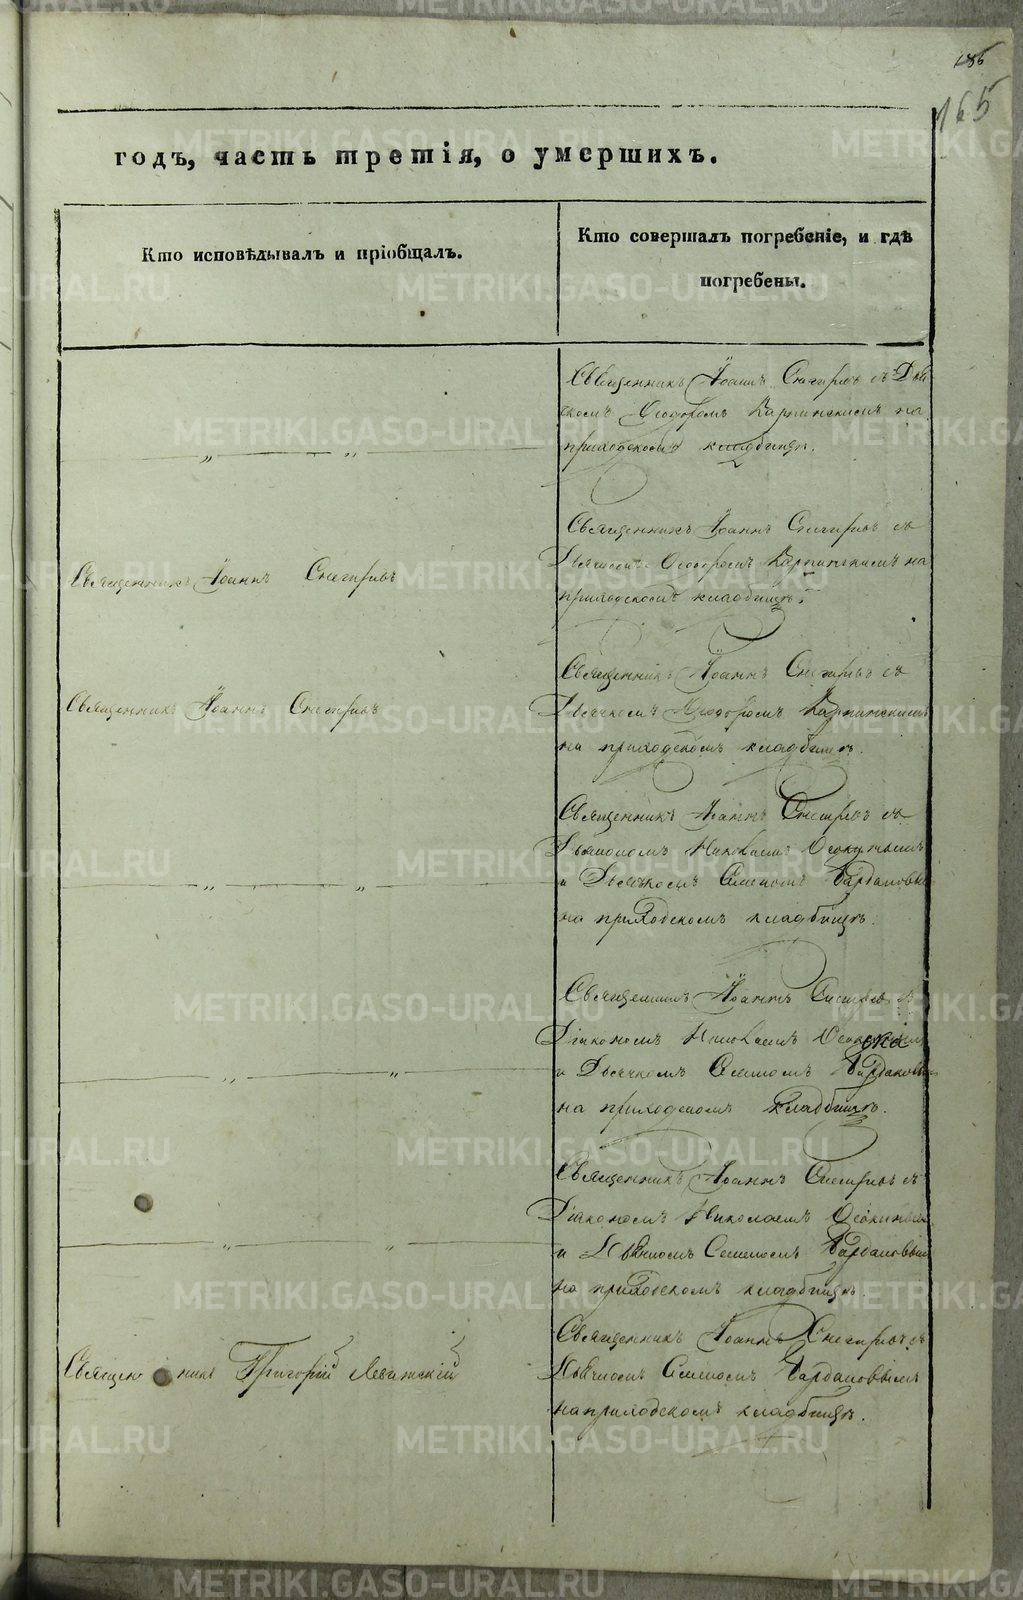 165
годъ, часть третія, о умершихъ.
Кто исповѣдывалъ и пріобщалъ.
Кто совершалъ погребеніе, и гдѣ
погребены.
Священникъ Іоаннъ Снегиревъ съ Дья
комъ Ѳеодоромъ Карпинскимъ на
приходскомъ кладбищѣ.
Священникъ Іоаннъ Снегиревъ съ
Священникъ Іоаннъ Снегиревъ
Дьячкомъ Ѳеодоромъ Карпинскимъ на
приходскомъ кладбищѣ.
Священникъ Іоаннъ Снегиревъ съ
Священникъ Іоаннъ Снегиревъ
Дьячкомъ Ѳеодоромъ Карпинскимъ
на приходскомъ кладбищѣ.
Священникъ Іоаннъ Снегиревъ съ
Дьякономъ Николаемъ Осокинымъ
и Дьячкомъ Семеномъ
на приходскомъ кладбищѣ.
Священникъ Іоаннъ Снегиревъ съ
Діакономъ Николаемъ
и Дьячкомъ Семеномъ
на приходскомъ кладбищѣ.
Священникъ Іоаннъ Снегиревъ съ
Діакономъ Николаемъ Осокинымъ
и Дьячкомъ Семеномъ
на приходскомъ кладбищѣ.
Священникъ Іоаннъ Снегиревъ съ
Священникъ Григорій Левитскій
Дьячкомъ Семеномъ
на приходскомъ кладбищѣ.
METRIKI.GASO-URAL.RU